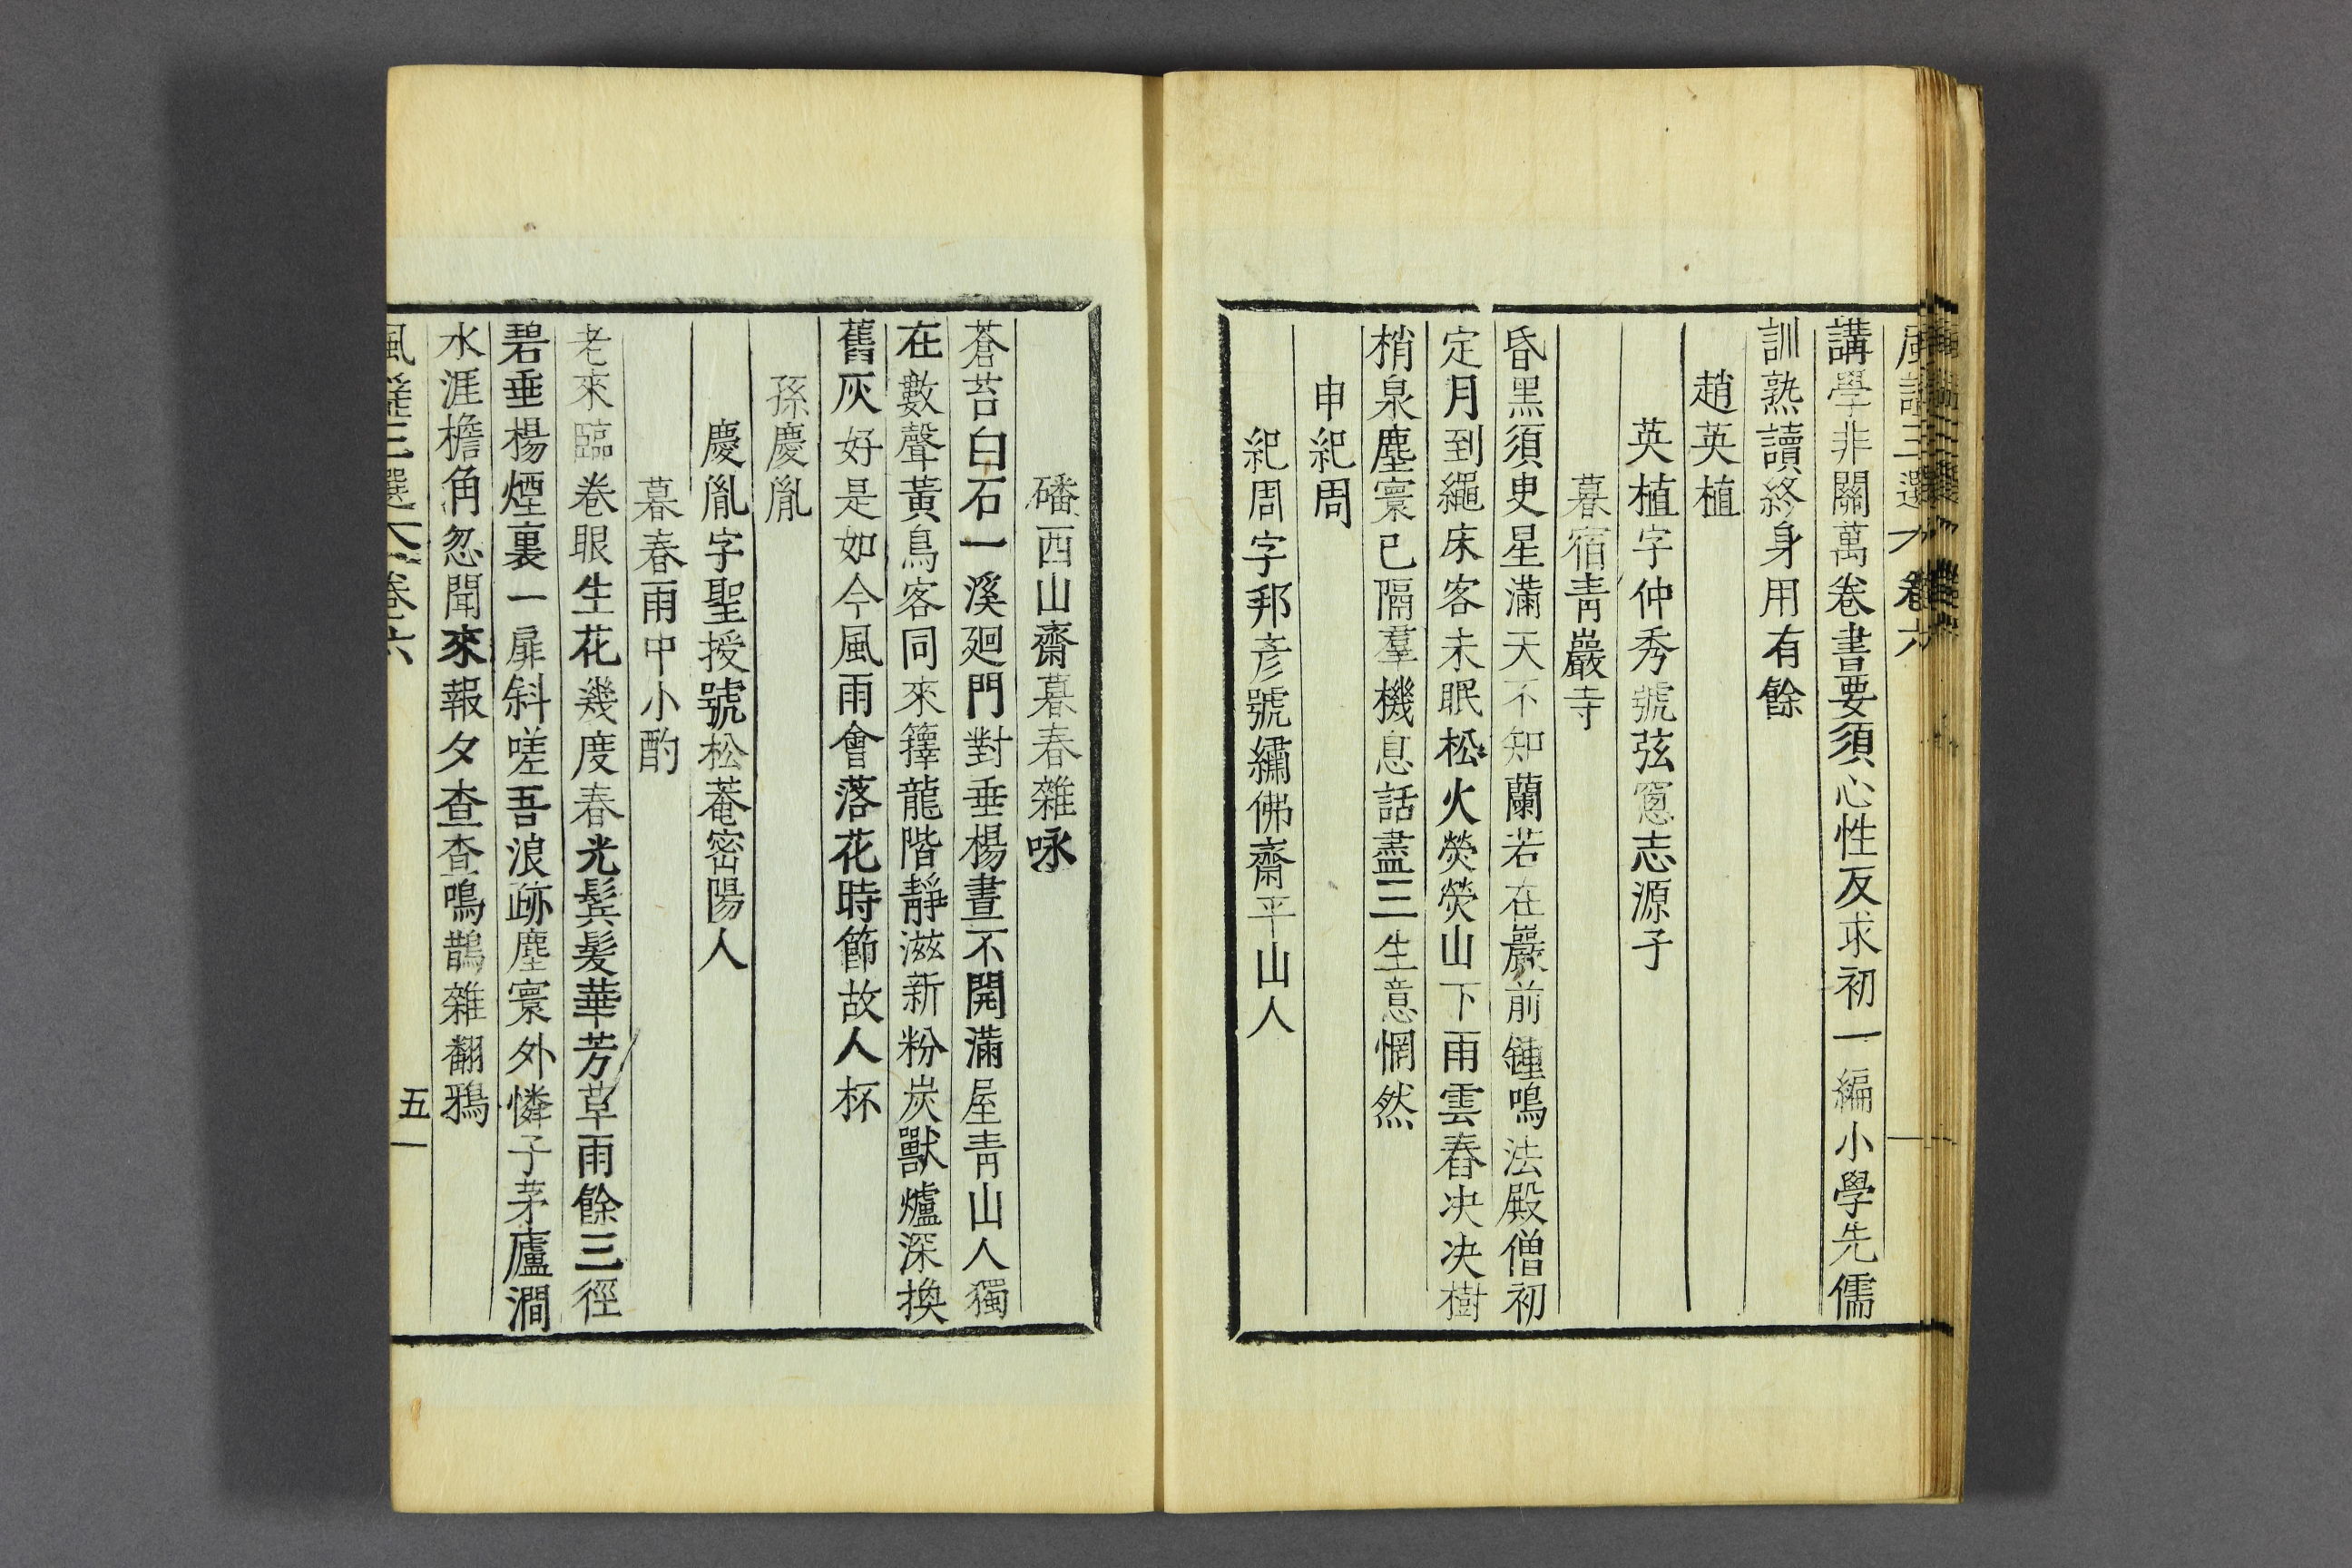 風謠三選 卷六
講學非關萬卷書要須心性反求初一編小學先儒
訓熟讀終身用有餘
趙英植
英植字仲秀號弦窓志源子
暮宿靑巖寺
昏黑須臾星滿天不知蘭若在巖前鍾鳴法殿僧初
定月到繩床客未眠松火熒熒山下雨雲舂决决樹
梢泉塵寰已隔羣機息話盡三生意惘然
申紀周
紀周字邦彦號繡佛齋平山人
磻西山齋暮春雜咏
蒼苔白石一溪廻門對垂楊晝不開滿屋靑山人獨
在數聲黃鳥客同來籜龍階靜滋新粉炭獸爐深換
舊灰好是如今風雨會落花時節故人杯
孫慶胤
慶胤字聖授號松菴密陽人
暮春雨中小酌
老來臨卷眼生花幾度春光鬓髮華芳草雨餘三徑
碧垂楊煙裏一扉斜嗟吾浪跡塵寰外憐子茅廬澗
水涯檐角忽聞來報夕查查鳴鵲雜翻鴉
風謠三選 卷六 五